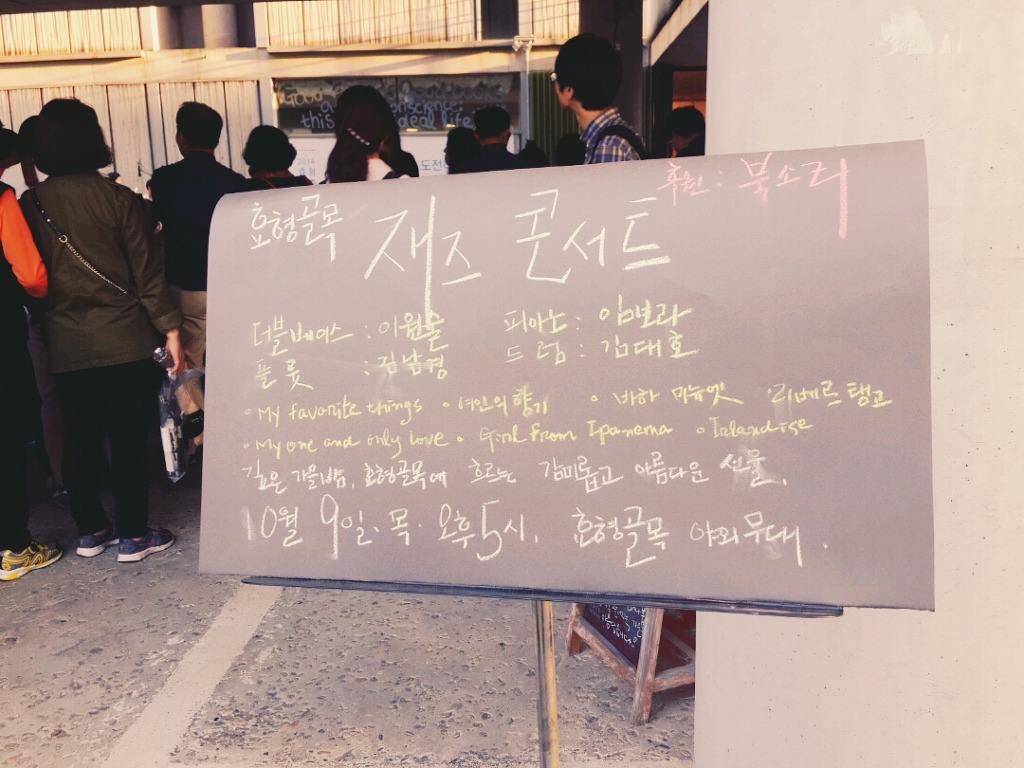 Good
conscience;
this
deal life
2014
도전
후원 : 북소리
효형골목 재즈 콘서트
더블베이스 : 이원술 피아노 : 임보라
플룻 : 김남경 드럼 : 김대호
• My favorite things • 여인의 향기 • 바하 미뉴엣 리베르탱고
• My one and only love • Girl From Ipanema • Inlandise
깊은 가을밤, 효형골목에 흐르는 감미롭고 아름다운 선물.
10월 9일. 목. 오후 5시. 효형골목 야외무대.